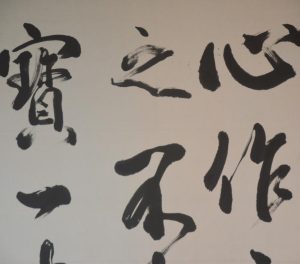 心作
之不
寶一